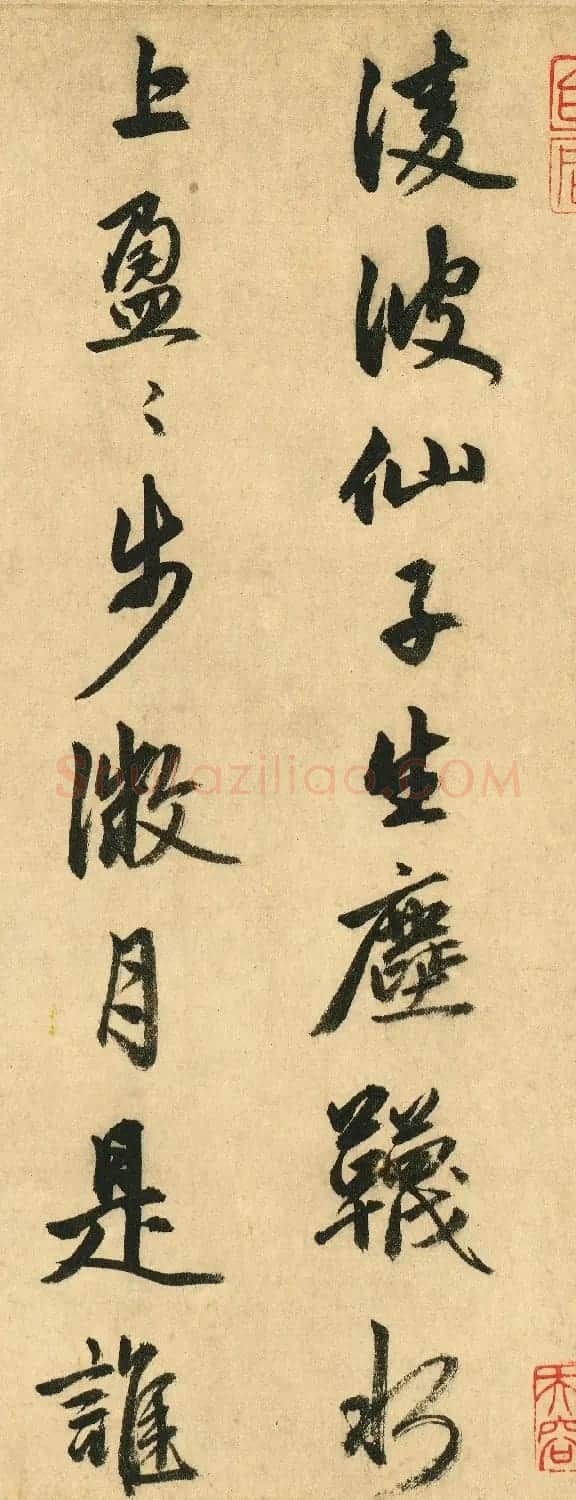 淩波仙子生塵韈水
上盈〻步微月是誰
Shufaziliao.COM